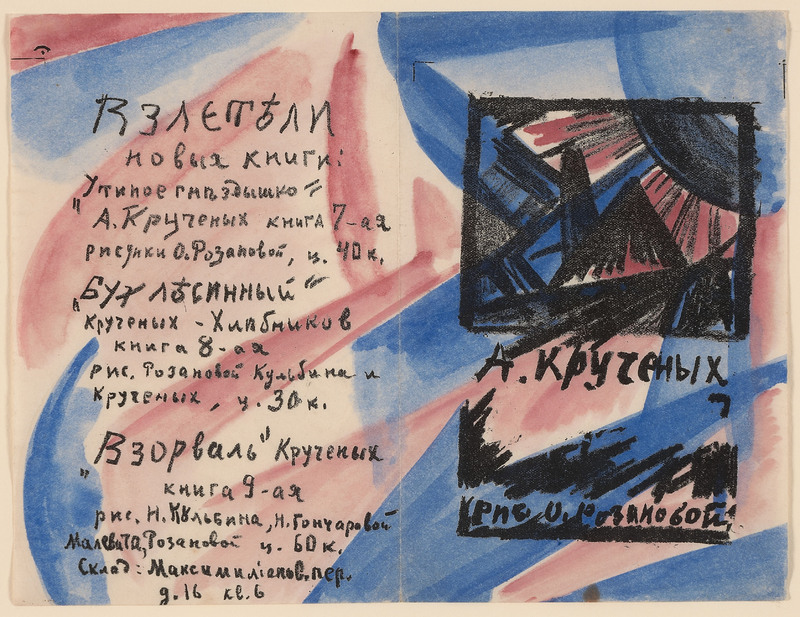 Взлетѣли
новыя книги:
"Утиное гнѣздышко"
А. Крученых книга 7-ая
рисунки О. Розановой, ц. 40 к.
"Бух лѣсинный"
крученых - Хлѣбников
книга 8-ая
рис. Розановой Кульбина и
Крученых, ц. 30 к.
"Взорваль" Крученых
книга 9-ая
рис. Н. Кульбина, Н. Гончаровой
Малевича, Розановой ц. 60 к.
Склад: Максимиліанов. пер.
д. 16 кв. 6
А. Крученых
рис О. Розановой